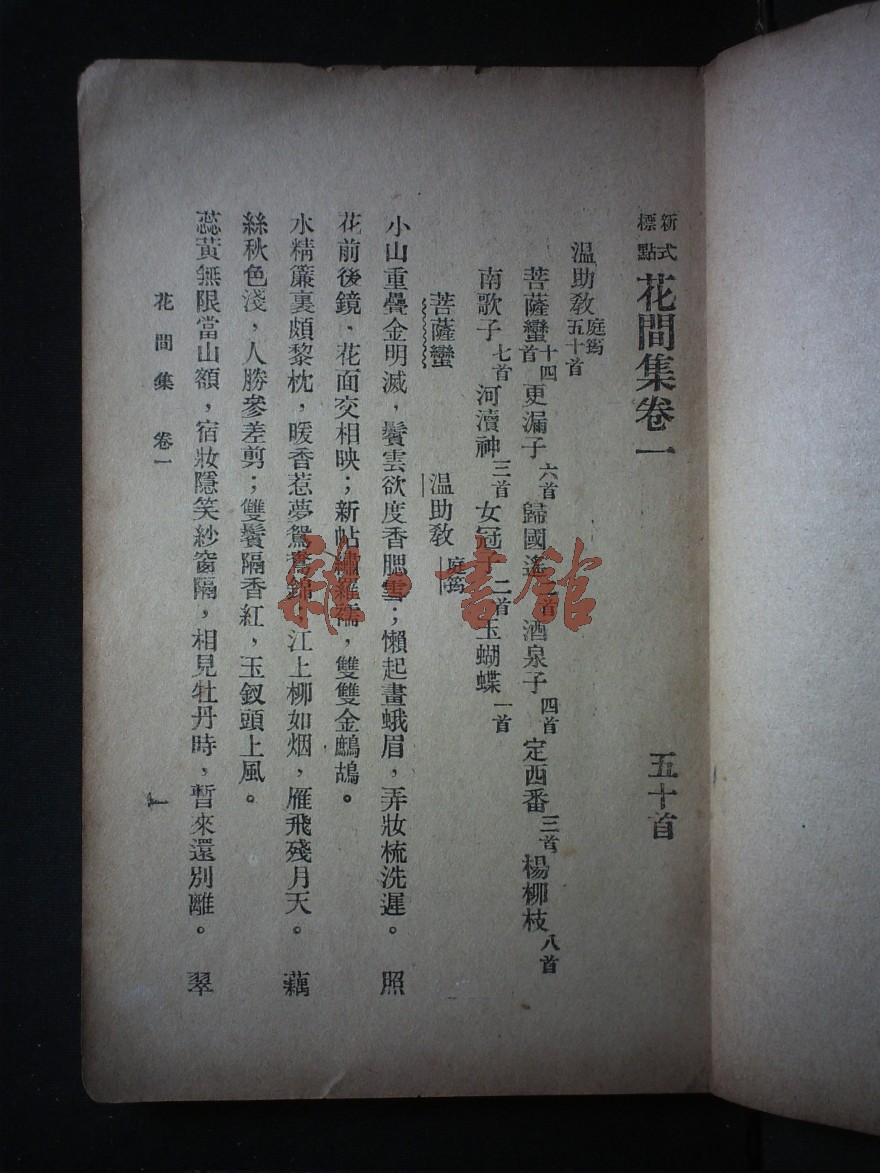 新式標點花間集卷一 五十首
温助教庭筠五十首
菩薩蠻十四首 更漏子六首 歸國遙二首 酒泉子四首 定西番三首 楊柳枝八首
南歌子七首 河瀆神三首 女冠子二首 玉蝴蝶一首
菩薩蠻 温助教庭筠
小山重疊金明滅，鬢雲欲度香腮雪；懶起畫蛾眉，弄妝梳洗遲。照
花前後鏡，花面交相映；新帖繡羅襦，雙雙金鷓鴣。
水精簾裏頗黎枕，暖香惹夢鴛鴦錦，江上柳如烟，雁飛殘月天。藕
絲秋色淺，人勝參差剪；雙鬢隔香紅，玉釵頭上風。
蕊黃無限當山額，宿妝隱笑紗窗隔，相見牡丹時，暫來還別離。翠
花間集 卷一 一
雜·書館